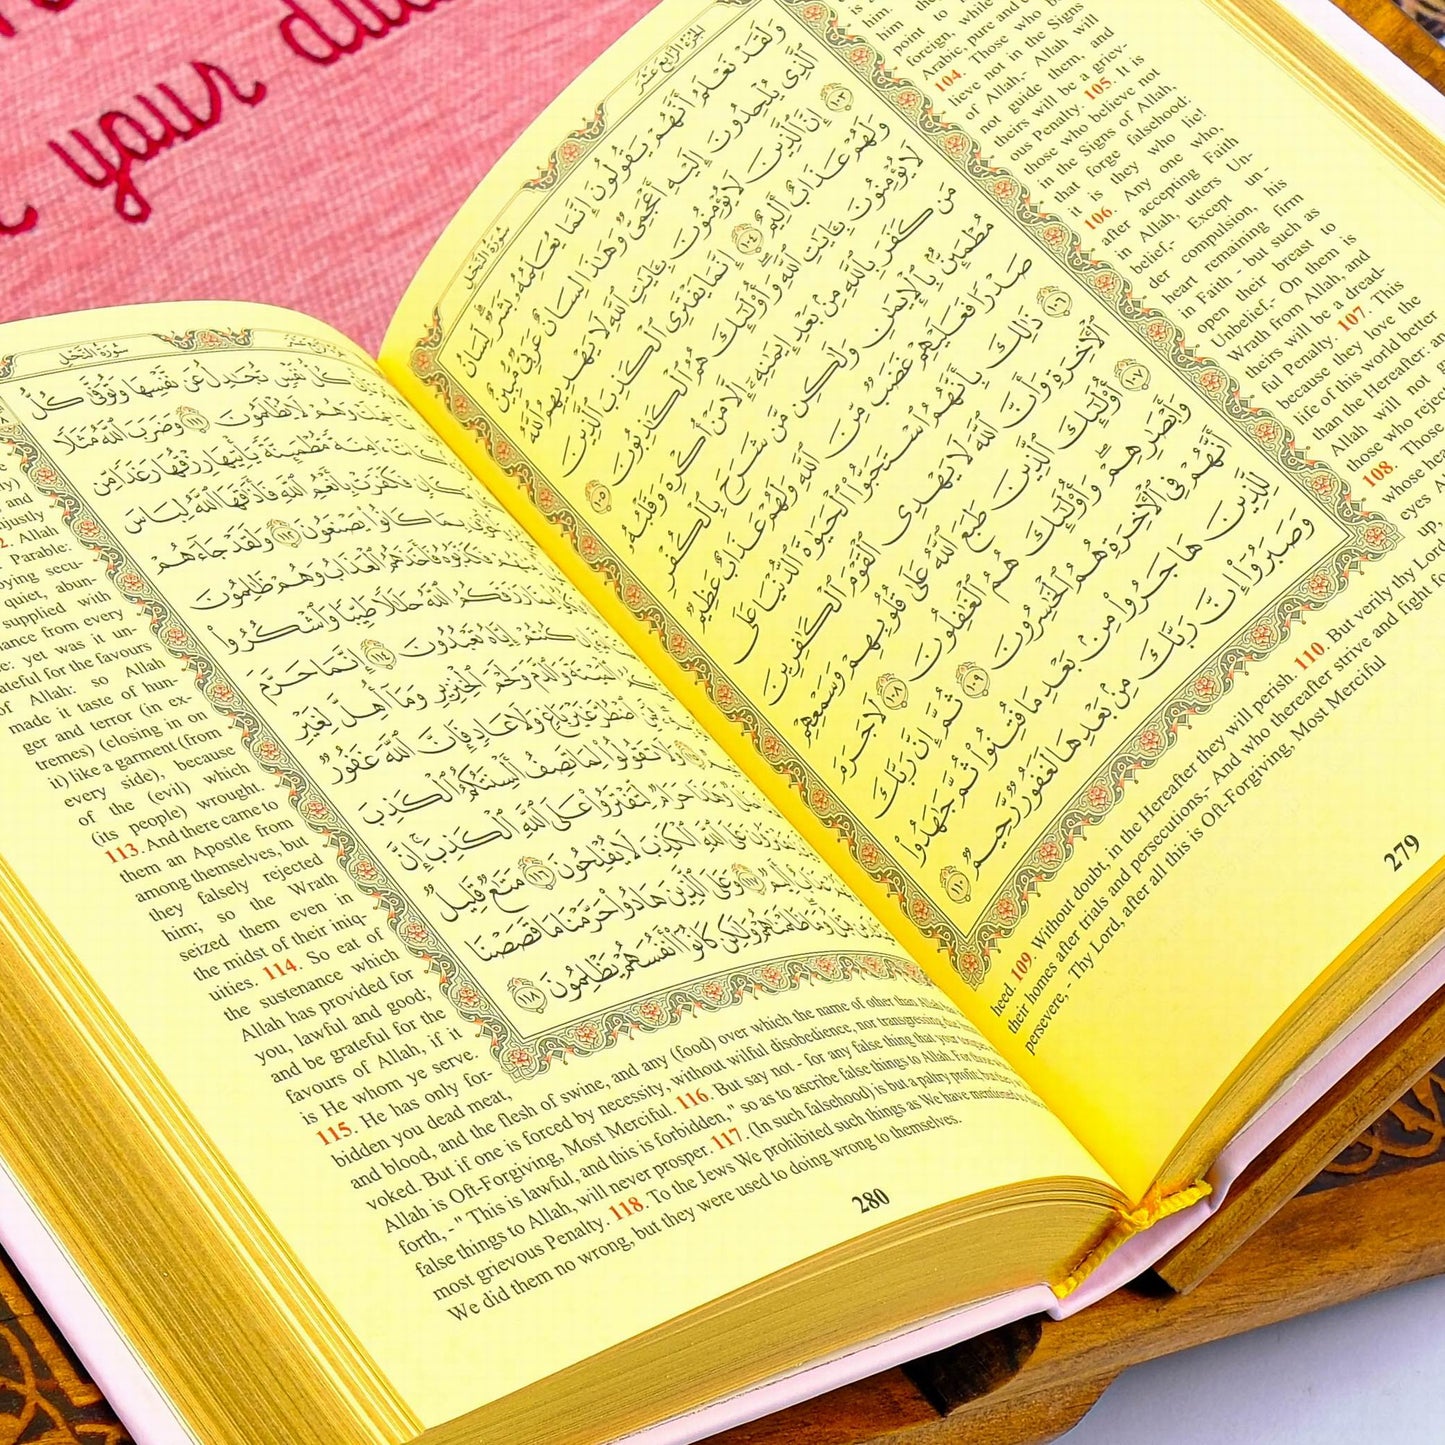 your
الجزء الرابع عشر
سورة النحل
وَلَقَدْ نَعْلَمُ أَنَّهُمْ يَقُولُونَ إِنَّمَا يُعَلِّمُهُۥ بَشَرٌ لِّسَانُ
ٱلَّذِى يُلْحِدُونَ إِلَيْهِ أَعْجَمِىٌّ وَهَٰذَا لِسَانٌ عَرَبِىٌّ مُّبِينٌ
١٠٣ إِنَّ ٱلَّذِينَ لَا يُؤْمِنُونَ بِـَٔايَٰتِ ٱللَّهِ لَا يَهْدِيهِمُ ٱللَّهُ
وَلَهُمْ عَذَابٌ أَلِيمٌ ١٠٤ إِنَّمَا يَفْتَرِى ٱلْكَذِبَ ٱلَّذِينَ
لَا يُؤْمِنُونَ بِـَٔايَٰتِ ٱللَّهِ وَأُو۟لَٰٓئِكَ هُمُ ٱلْكَٰذِبُونَ ١٠٥
مَن كَفَرَ بِٱللَّهِ مِنۢ بَعْدِ إِيمَٰنِهِۦٓ إِلَّا مَنْ أُكْرِهَ وَقَلْبُهُۥ
مُطْمَئِنٌّۢ بِٱلْإِيمَٰنِ وَلَٰكِن مَّن شَرَحَ بِٱلْكُفْرِ
صَدْرًا فَعَلَيْهِمْ غَضَبٌ مِّنَ ٱللَّهِ وَلَهُمْ عَذَابٌ عَظِيمٌ
١٠٦ ذَٰلِكَ بِأَنَّهُمُ ٱسْتَحَبُّوا۟ ٱلْحَيَوٰةَ ٱلدُّنْيَا عَلَى
ٱلْءَاخِرَةِ وَأَنَّ ٱللَّهَ لَا يَهْدِى ٱلْقَوْمَ ٱلْكَٰفِرِينَ
١٠٧ أُو۟لَٰٓئِكَ ٱلَّذِينَ طَبَعَ ٱللَّهُ عَلَىٰ قُلُوبِهِمْ وَسَمْعِهِمْ
وَأَبْصَٰرِهِمْ وَأُو۟لَٰٓئِكَ هُمُ ٱلْغَٰفِلُونَ ١٠٨ لَا جَرَمَ
أَنَّهُمْ فِى ٱلْءَاخِرَةِ هُمُ ٱلْخَٰسِرُونَ ١٠٩ ثُمَّ إِنَّ رَبَّكَ
لِلَّذِينَ هَاجَرُوا۟ مِنۢ بَعْدِ مَا فُتِنُوا۟ ثُمَّ جَٰهَدُوا۟
وَصَبَرُوٓا۟ إِنَّ رَبَّكَ مِنۢ بَعْدِهَا لَغَفُورٌ رَّحِيمٌ ١١٠
him.
point to
foreign, while
Arabic, pure and
104. Those who
lieve not in the Signs
of Allah,- Allah will
not guide them, and
theirs will be a griev-
ous Penalty. 105. It is
those who believe not
in the Signs of Allah,
that forge falsehood:
it is they who lie!
106. Any one who,
after accepting Faith
in Allah, utters Un-
belief,- Except un-
der compulsion, his
heart remaining firm
in Faith - but such as
open their breast to
Unbelief,- On them is
Wrath from Allah, and
theirs will be a dread-
ful Penalty. 107. This
because they love the
life of this world better
than the Hereafter: and
Allah will not
those who reject
108. Those
whose
eyes
up,
heed. 109. Without doubt, in the Hereafter they will perish. 110. But verily thy Lord,
their homes after trials and persecutions,- And who thereafter strive and fight
persevere, - Thy Lord, after all this is Oft-Forgiving, Most Merciful
279
سورة النحل
كُلُّ نَفْسٍ تُجَٰدِلُ عَن نَّفْسِهَا وَتُوَفَّىٰ كُلُّ
وَهُمْ لَا يُظْلَمُونَ ١١١ وَضَرَبَ ٱللَّهُ مَثَلًا
ءَامِنَةً مُّطْمَئِنَّةً يَأْتِيهَا رِزْقُهَا رَغَدًا مِّن
فَكَفَرَتْ بِأَنْعُمِ ٱللَّهِ فَأَذَٰقَهَا ٱللَّهُ لِبَاسَ
بِمَا كَانُوا۟ يَصْنَعُونَ ١١٢ وَلَقَدْ جَآءَهُمْ
فَكَذَّبُوهُ فَأَخَذَهُمُ ٱلْعَذَابُ وَهُمْ ظَٰلِمُونَ
رَزَقَكُمُ ٱللَّهُ حَلَٰلًا طَيِّبًا وَٱشْكُرُوا۟
كُنتُمْ إِيَّاهُ تَعْبُدُونَ ١١٤ إِنَّمَا حَرَّمَ
ٱلْمَيْتَةَ وَٱلدَّمَ وَلَحْمَ ٱلْخِنزِيرِ وَمَآ أُهِلَّ لِغَيْرِ
ٱضْطُرَّ غَيْرَ بَاغٍ وَلَا عَادٍ فَإِنَّ ٱللَّهَ غَفُورٌ
وَلَا تَقُولُوا۟ لِمَا تَصِفُ أَلْسِنَتُكُمُ ٱلْكَذِبَ
وَهَٰذَا حَرَامٌ لِّتَفْتَرُوا۟ عَلَى ٱللَّهِ ٱلْكَذِبَ إِنَّ
عَلَى ٱللَّهِ ٱلْكَذِبَ لَا يُفْلِحُونَ ١١٦ مَتَٰعٌ قَلِيلٌ
١١٧ وَعَلَى ٱلَّذِينَ هَادُوا۟ حَرَّمْنَا مَا قَصَصْنَا
وَمَا ظَلَمْنَٰهُمْ وَلَٰكِن كَانُوٓا۟ أَنفُسَهُمْ يَظْلِمُونَ ١١٨
and
unjustly
Allah
Parable:
enjoying secu-
quiet, abun-
supplied with
from every
yet was it un-
for the favours
of Allah: so Allah
made it taste of hun-
ger and terror (in ex-
tremes) (closing in on
it) like a garment (from
every side), because
of the (evil) which
(its people) wrought.
113. And there came to
them an Apostle from
among themselves, but
they falsely rejected
him; so the Wrath
seized them even in
the midst of their iniq-
uities. 114. So eat of
the sustenance which
Allah has provided for
you, lawful and good;
and be grateful for the
favours of Allah, if it
is He whom ye serve.
115. He has only for-
bidden you dead meat,
and blood, and the flesh of swine, and any (food) over which the name of other than Allah
voked. But if one is forced by necessity, without wilful disobedience, nor transgressing
Allah is Oft-Forgiving, Most Merciful. 116. But say not - for any false thing that your
forth, - " This is lawful, and this is forbidden," so as to ascribe false things to Allah. For those
false things to Allah, will never prosper. 117. (In such falsehood) is but a paltry profit;
most grievous Penalty. 118. To the Jews We prohibited such things as We have mentioned
We did them no wrong, but they were used to doing wrong to themselves.
280